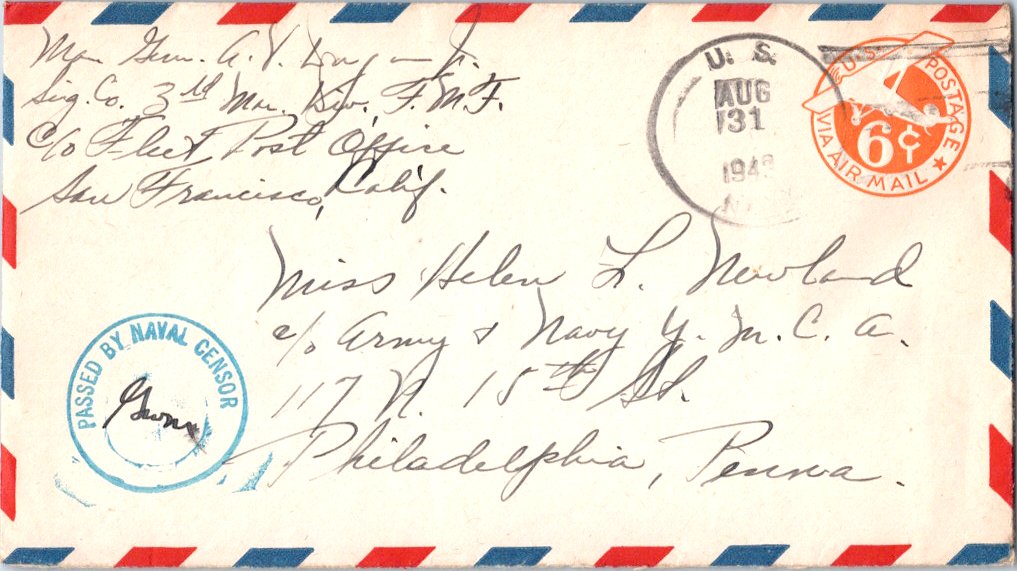 Mar. Gun. A. V.
Sig. Co. 3rd Mar. Div., F.M.F.
c/o Fleet Post Office
San Francisco, Calif.
U. S.
AUG
31
U.S. POSTAGE
6¢
VIA AIR MAIL
Miss Helen L. Newland
c/o Army & Navy Y. M. C. A.
117 N. 15th St.
Philadelphia, Penna.
PASSED BY NAVAL CENSOR